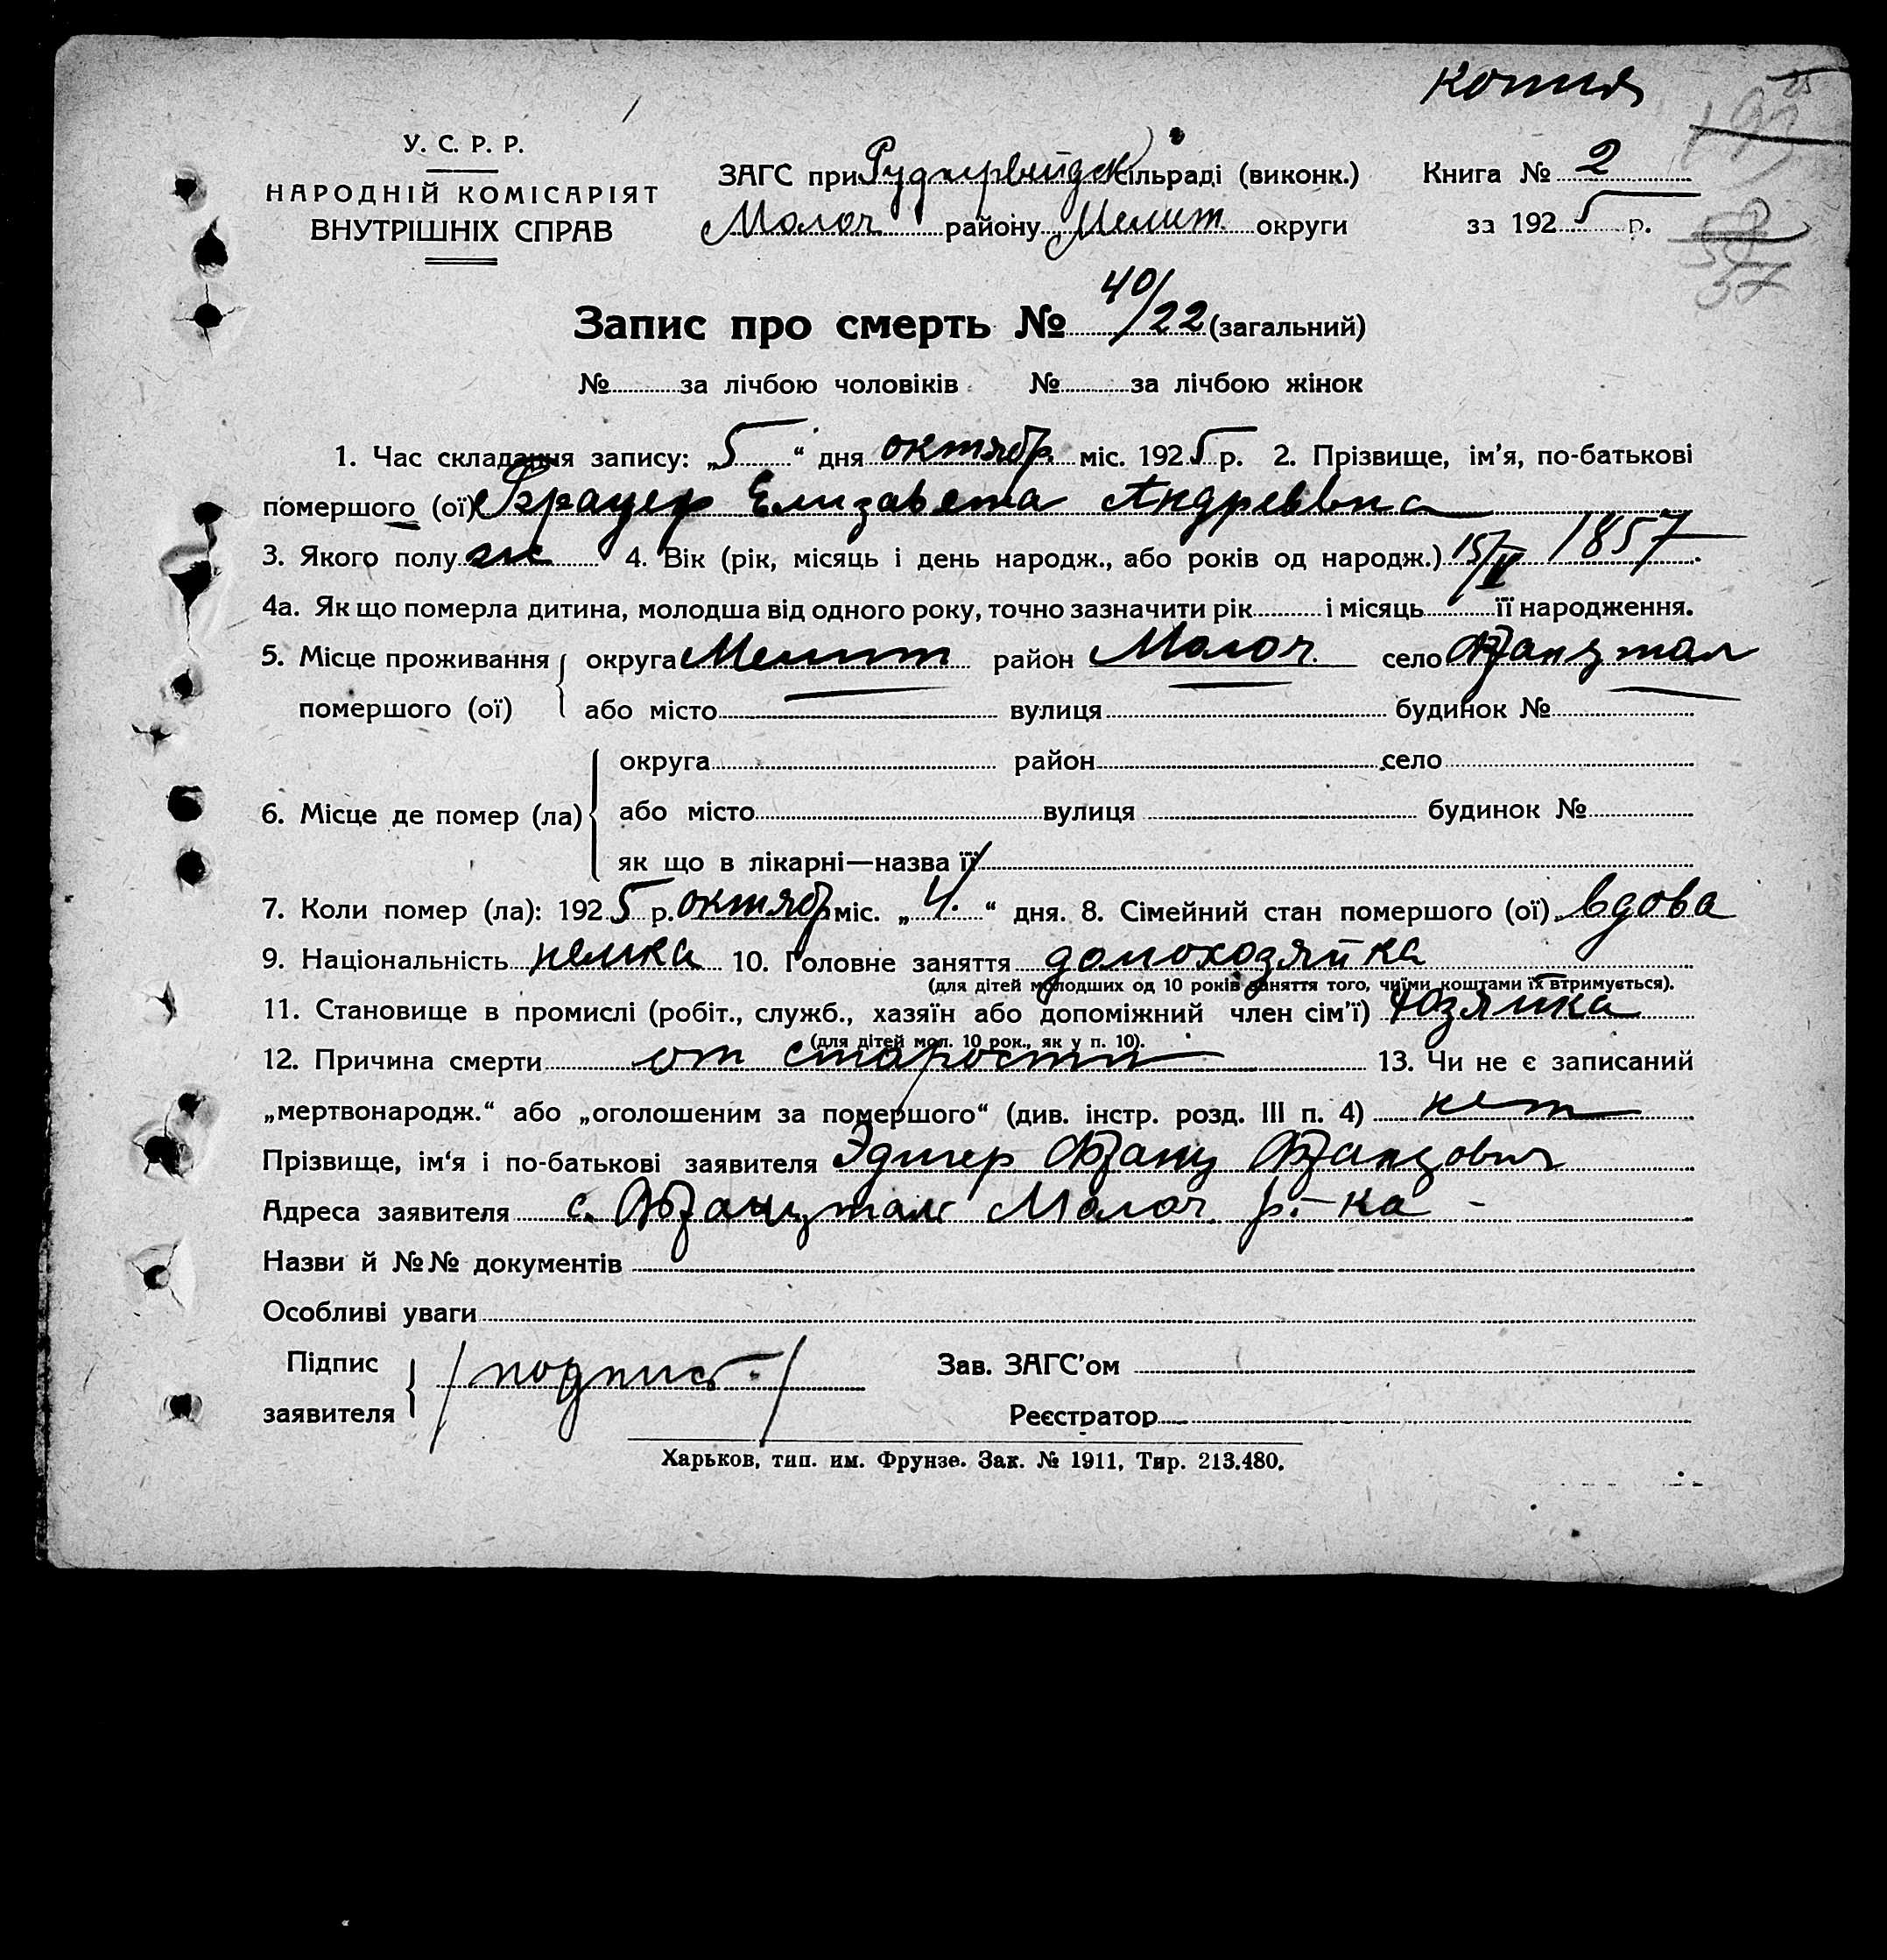 копия
У. С. Р. Р.
НАРОДНІЙ КОМІСАРІЯТ
ВНУТРІШНІХ СПРАВ
ЗАГС при Руднервейдск сільраді (виконк.)
Молоч району Мелит. округи
Книга № 2
за 1925 р.
57
Запис про смерть № 40/22 (загальний)
№ за лічбою чоловіків № за лічбою жінок
1. Час складання запису: „5“ дня октябр міс. 1925 р. 2. Прізвище, ім’я, по-батькові
помершого (ої) Брауер Елизавета Андреевна
3. Якого полу ж 4. Вік (рік, місяць і день народж., або років од народж.) 15/V 1857.
4а. Як що померла дитина, молодша від одного року, точно зазначити рік і місяць її народження.
5. Місце проживання помершого (ої) округа Мелит район Молоч. село Францтал
або місто вулиця будинок №
6. Місце де помер (ла) округа район село
або місто вулиця будинок №
як що в лікарні—назва її
7. Коли помер (ла): 1925 р. октябр міс. „4.“ дня. 8. Сімейний стан помершого (ої) вдова
9. Національність немка 10. Головне заняття домохозяйка
(для дітей молодших од 10 років заняття того, чиїми коштами їх втримується).
11. Становище в промислі (робіт., служб., хазяїн або допоміжний член сім’ї) хозяйка
(для дітей мол. 10 рок., як у п. 10).
12. Причина смерти от старости 13. Чи не є записаний
„мертвонародж.“ або „оголошеним за помершого“ (див. інстр. розд. III п. 4) нет
Прізвище, ім‘я і по-батькові заявителя Эдигер Франц Францович
Адреса заявителя с. Францтал Молоч р-ка -
Назви й №№ документів
Особливі уваги
Підпис заявителя /подпись/ Зав. ЗАГС’ом
Реєстратор
Харьков, тип. им. Фрунзе. Зак. № 1911, Тир. 213.480.